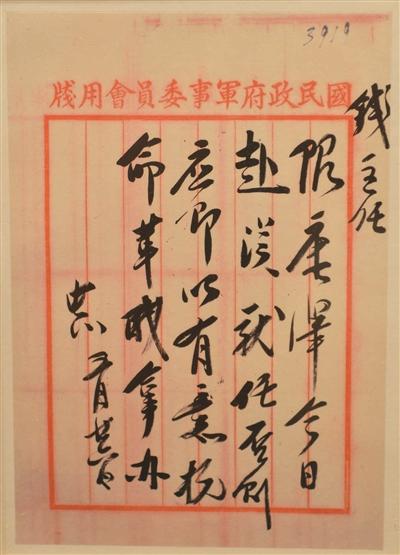 3919
國民政府軍事委員會用牋
錢主任
限康澤今日
赴漢就任否則
应即以有意抗
命革職拿办
中正 五月